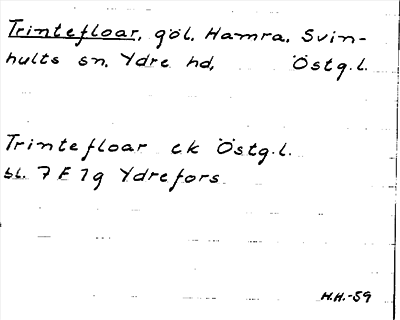 Trintefloar, göl, Hamra, Svin-
hults sn, Ydre hd, Östg.l.
Trintefloar ek Östg.l.
bl. 7 F 1g Ydrefors.
H.H.-59